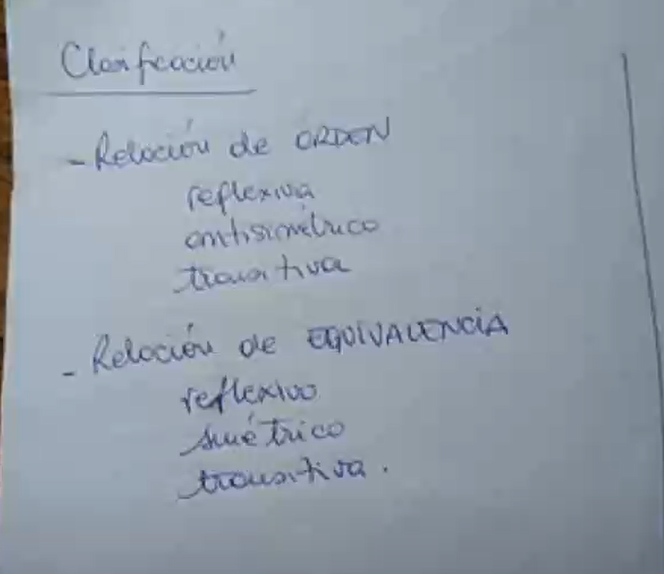 Clasificación
- Relación de ORDEN
reflexiva
antisimétrica
transitiva
- Relación de EQUIVALENCIA
reflexiva
simétrica
transitiva.